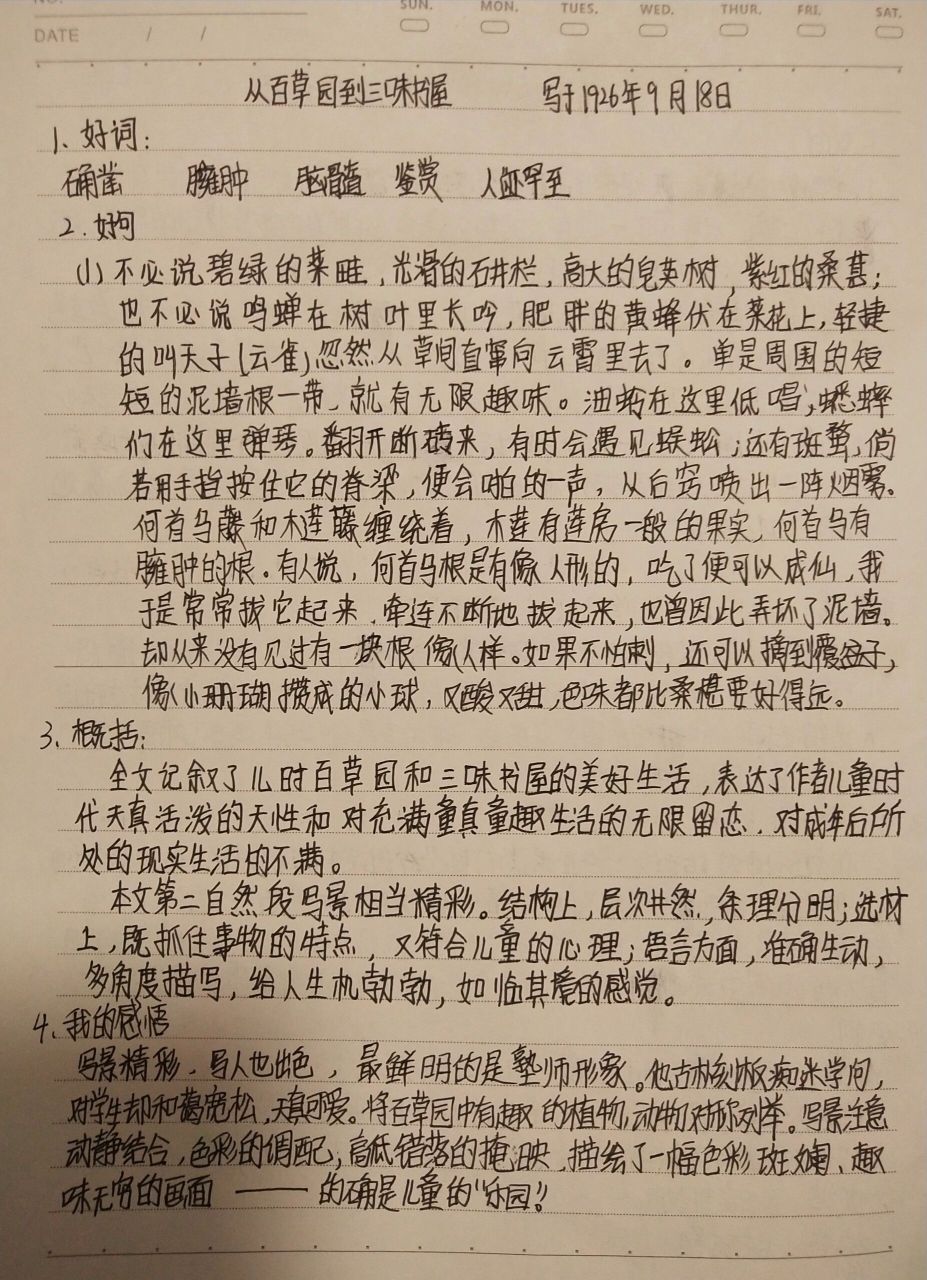 NO.
SUN. MON. TUES. WED. THUR. FRI. SAT.
DATE / /
从百草园到三味书屋 写于1926年9月18日
1、好词：
确凿 臃肿 脑髓 鉴赏 人迹罕至
2、好句
(1)不必说碧绿的菜畦，光滑的石井栏，高大的皂荚树，紫红的桑葚；
也不必说鸣蝉在树叶里长吟，肥胖的黄蜂伏在菜花上，轻捷
的叫天子(云雀)忽然从草间直窜向云霄里去了。单是周围的短
短的泥墙根一带，就有无限趣味。油蛉在这里低唱，蟋蟀
们在这里弹琴。翻开断砖来，有时会遇见蜈蚣；还有斑蝥，倘
若用手指按住它的脊梁，便会啪的一声，从后窍喷出一阵烟雾。
何首乌藤和木莲藤缠绕着，木莲有莲房一般的果实，何首乌有
臃肿的根。有人说，何首乌根是有像人形的，吃了便可以成仙，我
于是常常拔它起来，牵连不断地拔起来，也曾因此弄坏了泥墙。
却从来没有见过有一块根像人样。如果不怕刺，还可以摘到覆盆子，
像小珊瑚攒成的小球，又酸又甜，色味都比桑椹要好得远。
3、概括：
全文记叙了儿时百草园和三味书屋的美好生活，表达了作者儿童时
代天真活泼的天性和对充满童真童趣生活的无限留恋，对成年后所
处的现实生活的不满。
本文第二自然段写景相当精彩。结构上，层次井然，条理分明；选材
上，既抓住事物的特点，又符合儿童的心理；语言方面，准确生动，
多角度描写，给人生机勃勃，如临其境的感觉。
4、我的感悟
写景精彩，写人也出色，最鲜明的是塾师形象。他古朴刻板痴迷学问，
对学生却和蔼宽松，天真可爱。将百草园中有趣的植物，动物对称列举。写景注意
动静结合，色彩的调配，高低错落的掩映，描绘了一幅色彩斑斓、趣
味无穷的画面——的确是儿童的“乐园”！